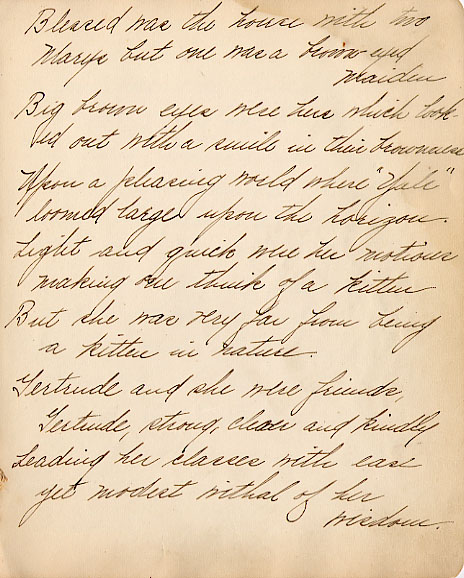 Blessed was the house with two
Marys but one was a brown-eyed
maiden
Big brown eyes were hers which look-
ed out with a smile in their brownness
Upon a pleasing world where "Yale"
loomed large upon the horizon.
Light and quick were her motions
making one think of a kitten
But she was very far from being
a kitten in nature.
Gertrude and she were friends,
Gertrude, strong, clear and kindly
Leading her classes with ease
yet modest withal of her
wisdom.